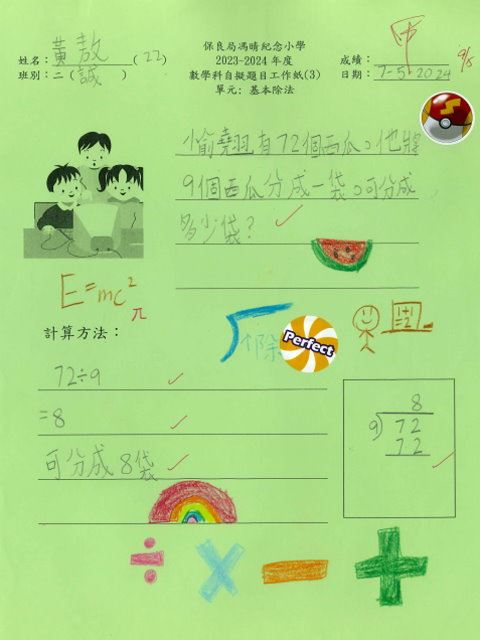 保良局馮晴紀念小學
姓名：黃敖(22)
2023-2024 年度
成績：甲
9/5
班別：二(誠)
數學科自擬題目工作紙(3)
日期：7-5-2024
單元：基本除法
有72個西瓜。他將
9個西瓜分成一袋。可分成
多少袋？
E=mc²
π
除
Perfect
計算方法：
72÷9
=8
可分成8袋
8
9)72
72
÷ × − +